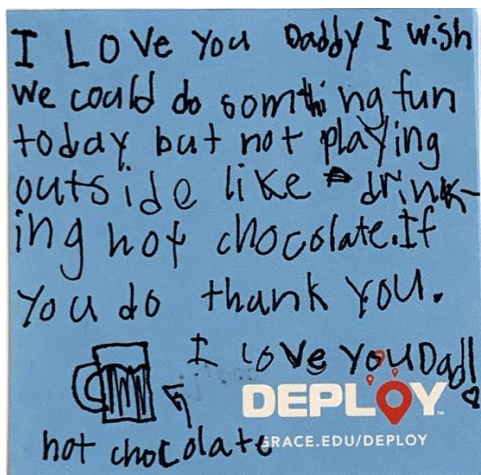 I LOVE You Daddy I wish
we could do somthing fun
today but not playing
outside like drink-
ing hot chocolate. If
you do thank you.
I LOVE YOU Dad!
DEPLOY
GRACE.EDU/DEPLOY
hot chocolate